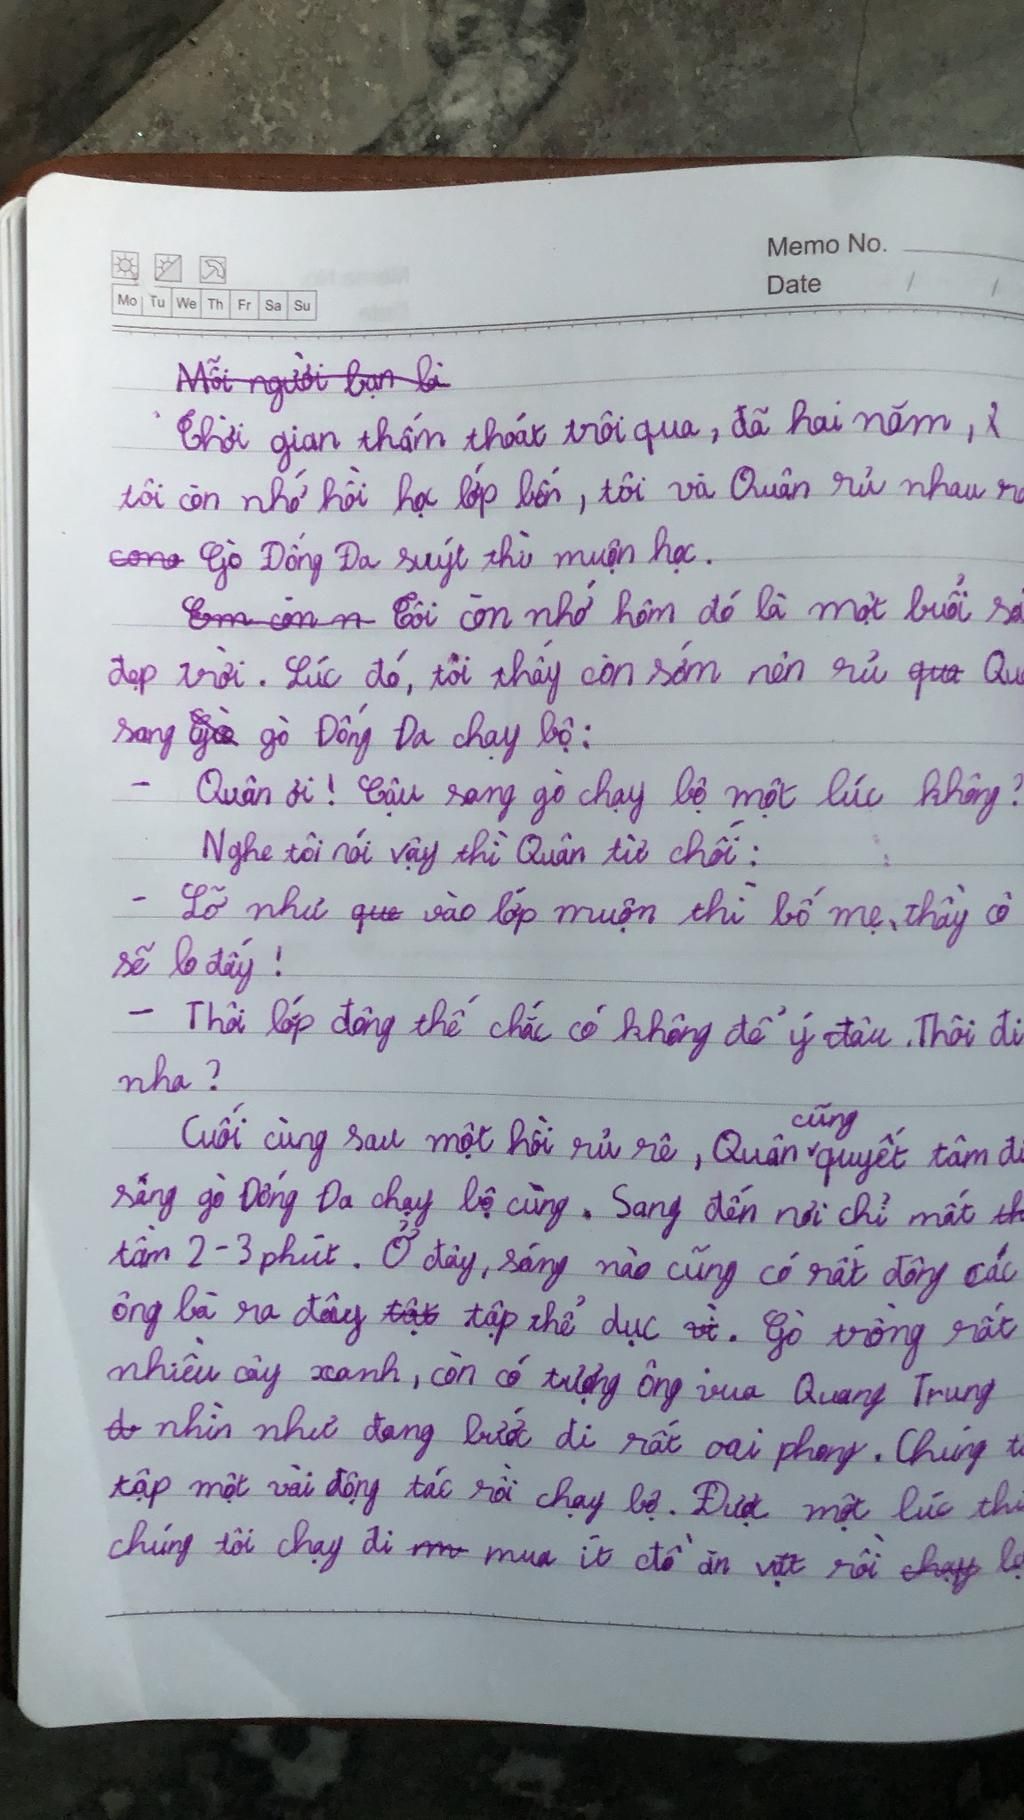 Memo No.
Date / /
Mo Tu We Th Fr Sa Su
Mỗi người bạn là
Thời gian thấm thoát trôi qua, đã hai năm,
tôi còn nhớ hồi học lớp bốn, tôi và Quân rủ nhau
cong Gò Đống Đa suýt thì muộn học.
Em còn n Tôi còn nhớ hôm đó là một buổi
đẹp trời. Lúc đó, tôi thấy còn sớm nên rủ qua
sang Gò gò Đống Đa chạy bộ:
- Quân ơi! Cậu sang gò chạy bộ một lúc không?
Nghe tôi nói vậy thì Quân từ chối:
- Lỡ như que vào lớp muộn thì bố mẹ, thầy cô
sẽ lo đấy!
- Thôi lớp đông thế chắc cô không để ý đâu. Thôi đi
nha?
Cuối cùng sau một hồi rủ rê, Quân cũng quyết tâm đi
sang gò Đống Đa chạy bộ cùng. Sang đến nơi chỉ mất th
tầm 2-3 phút. Ở đây, sáng nào cũng có rất đông các
ông bà ra đây tật tập thể dục vì. Gò trồng rất
nhiều cây xanh, còn có tượng ông vua Quang Trung
nhìn như đang bước đi rất oai phong. Chúng
tập một vài động tác rồi chạy bộ. Được một lúc
chúng tôi chạy đi mua ít đồ ăn vặt rồi chạy